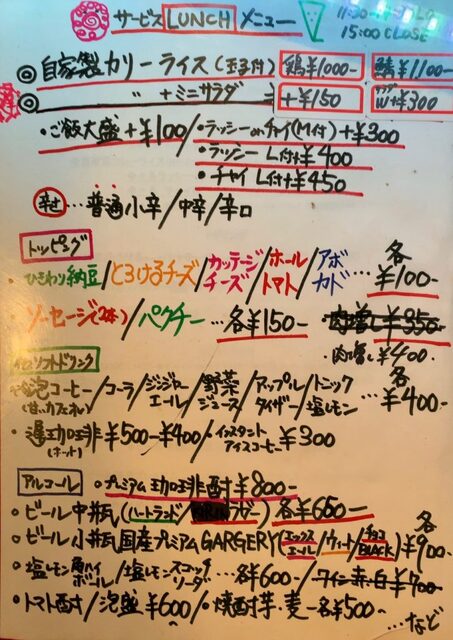 サービスLUNCHメニュー
15:00 CLOSE
◎自家製カリーライス(玉子付) 鶏¥1000- 鯖¥1100-
◎ 〃 +ミニサラダ +¥150 W+¥300
・ご飯大盛+¥100/・ラッシーorチャイ(M付)+¥300
・ラッシーL付+¥400
・チャイL付+¥450
辛さ…普通小辛/中辛/辛口
トッピング
ひきわり納豆/とろけるチーズ/カッテージチーズ/ホールトマト/アボカド…各¥100-
・ソーセージ(2本)/パクチー…各¥150- 肉増し¥350-
・肉増し¥400-
ソフトドリンク
泡コーヒー(甘い、カフェオレ)/コーラ/ジンジャーエール/野菜ジュース/アップルタイザー/トニック塩レモン…各¥400-
・珈琲(ホット)¥500-¥400/・インスタントアイスコーヒー¥300
アルコール ・プレミアム珈琲酎¥800-
・ビール中瓶(ハートランド/ラガー)各¥650-
・ビール小瓶国産プレミアムGARGERY(エックスエール/ウィート/チョコBLACK)各¥900
・塩レモン角ハイボール/塩レモンスコッチソーダ…各¥600/・ワイン赤・白¥700
・トマト酎/泡盛¥600/・焼酎芋・麦…各¥500 …など